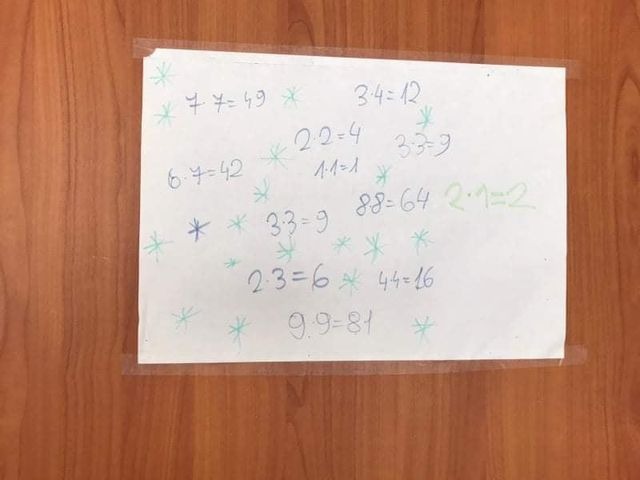 7·7=49
3·4=12
2·2=4
3·3=9
6·7=42
1·1=1
8·8=64
2·1=2
3·3=9
2·3=6
4·4=16
9·9=81